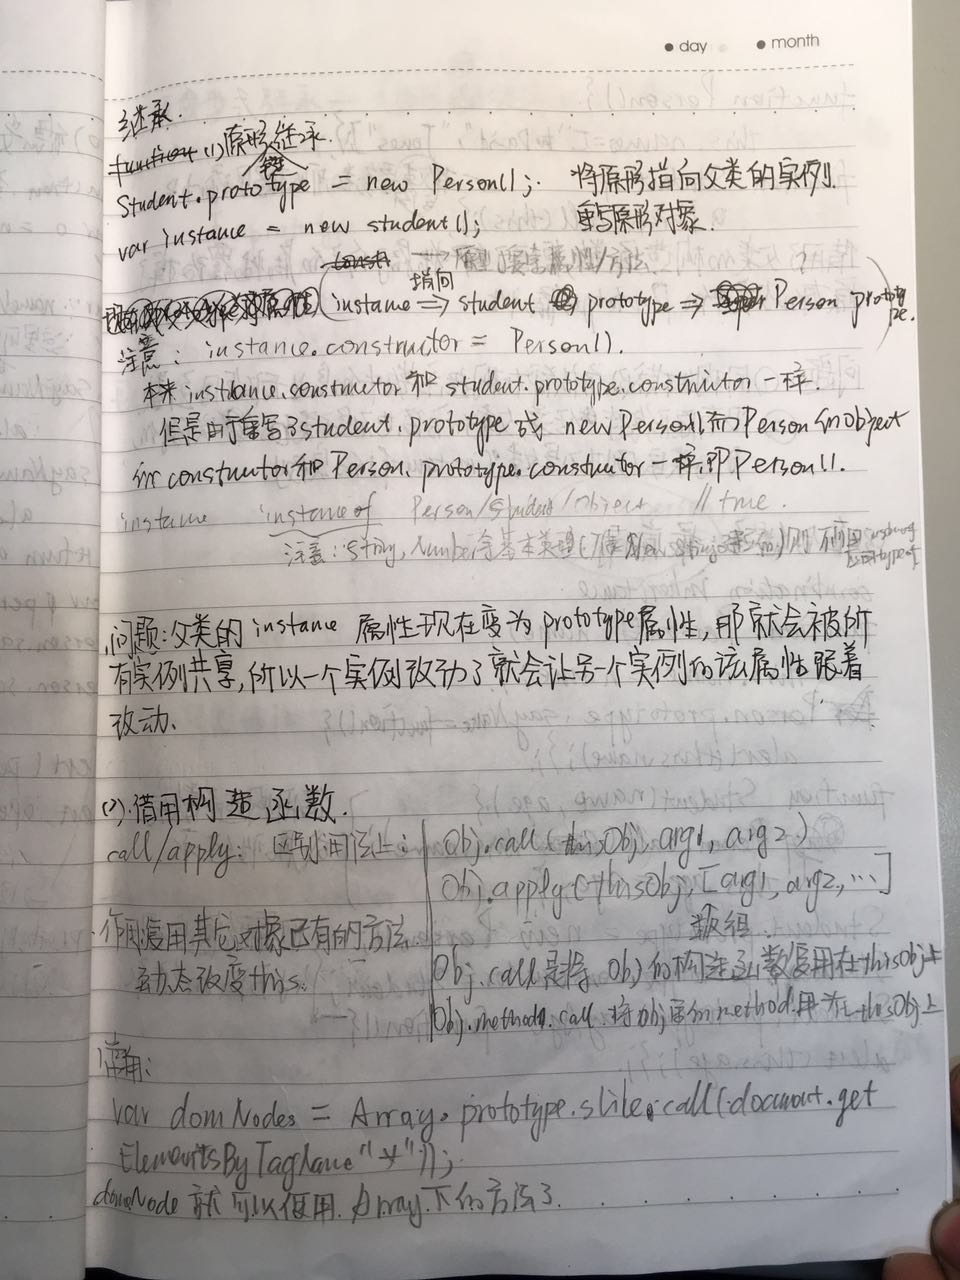 day month
继承.
(1)原形链继承.
Student.prototype = new Person(); 将原形指向父类的实例.
var instance = new student(); 重写原形对象.
指向
(instance => student prototype => Person prototype.)
注意: instance.constructor = Person().
本来 instance.constructor 和 student.prototype.constructor 一样.
但是由于重写了student.prototype 成 new Person()而Person的object
的 constructor和Person.prototype.constructor一样,即Person().
instance instanceof Person/Student/Object // true.
注意: String, Number等基本类型 则不用instanceof
应用typeof
问题:父类的 instance 属性现在变为 prototype属性,那就会被所
有实例共享,所以一个实例改动了就会让另一个实例的该属性跟着
改动.
(2).借用构造函数.
call/apply: 区别用法上: Obj.call(thisObj, arg1, arg2)
Obj.apply(thisObj, [arg1, arg2, ...]
数组.
作用:复用其他对象已有的方法.
动态改变this.
Obj.call是将 Obj的构造函数复用在thisObj上
Obj.method1.call 将Obj里的method用在thisObj上
常用:
var domNodes = Array.prototype.slice.call(document.get
ElementsByTagName"*"));
domNode 就可以使用 Array 下的方法了.